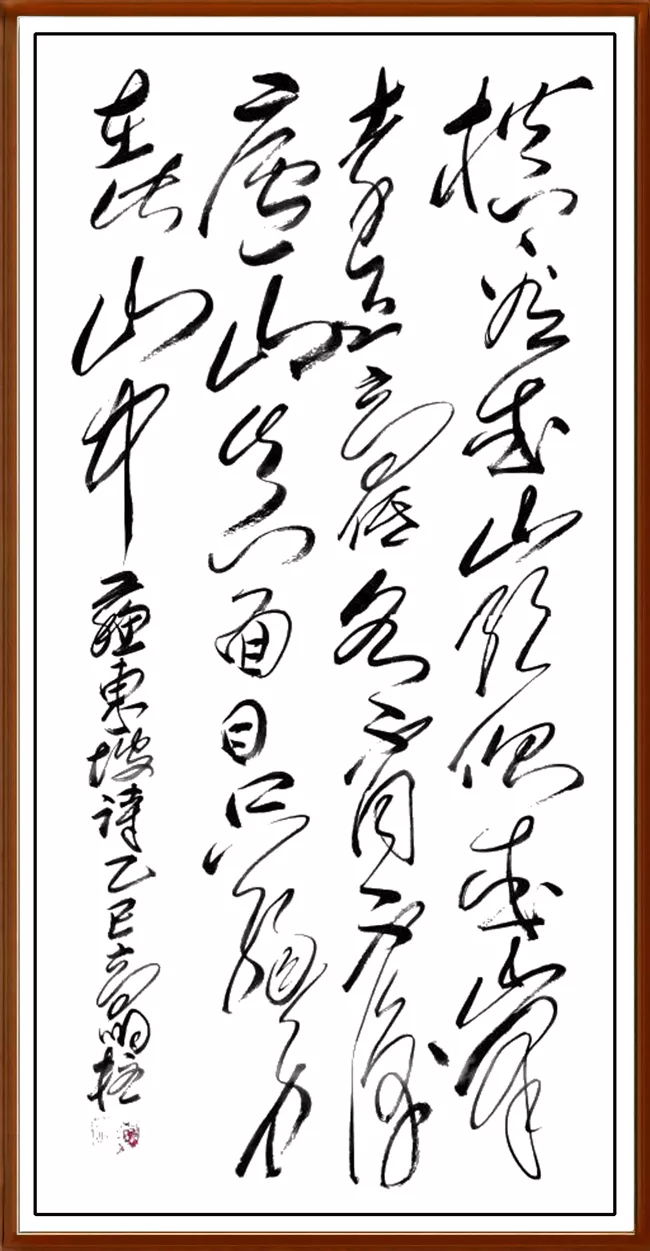 橫看成嶺側成峯
遠近高低各不同不識
廬山真面目只緣身
在此山中
蘇東坡詩乙巳高